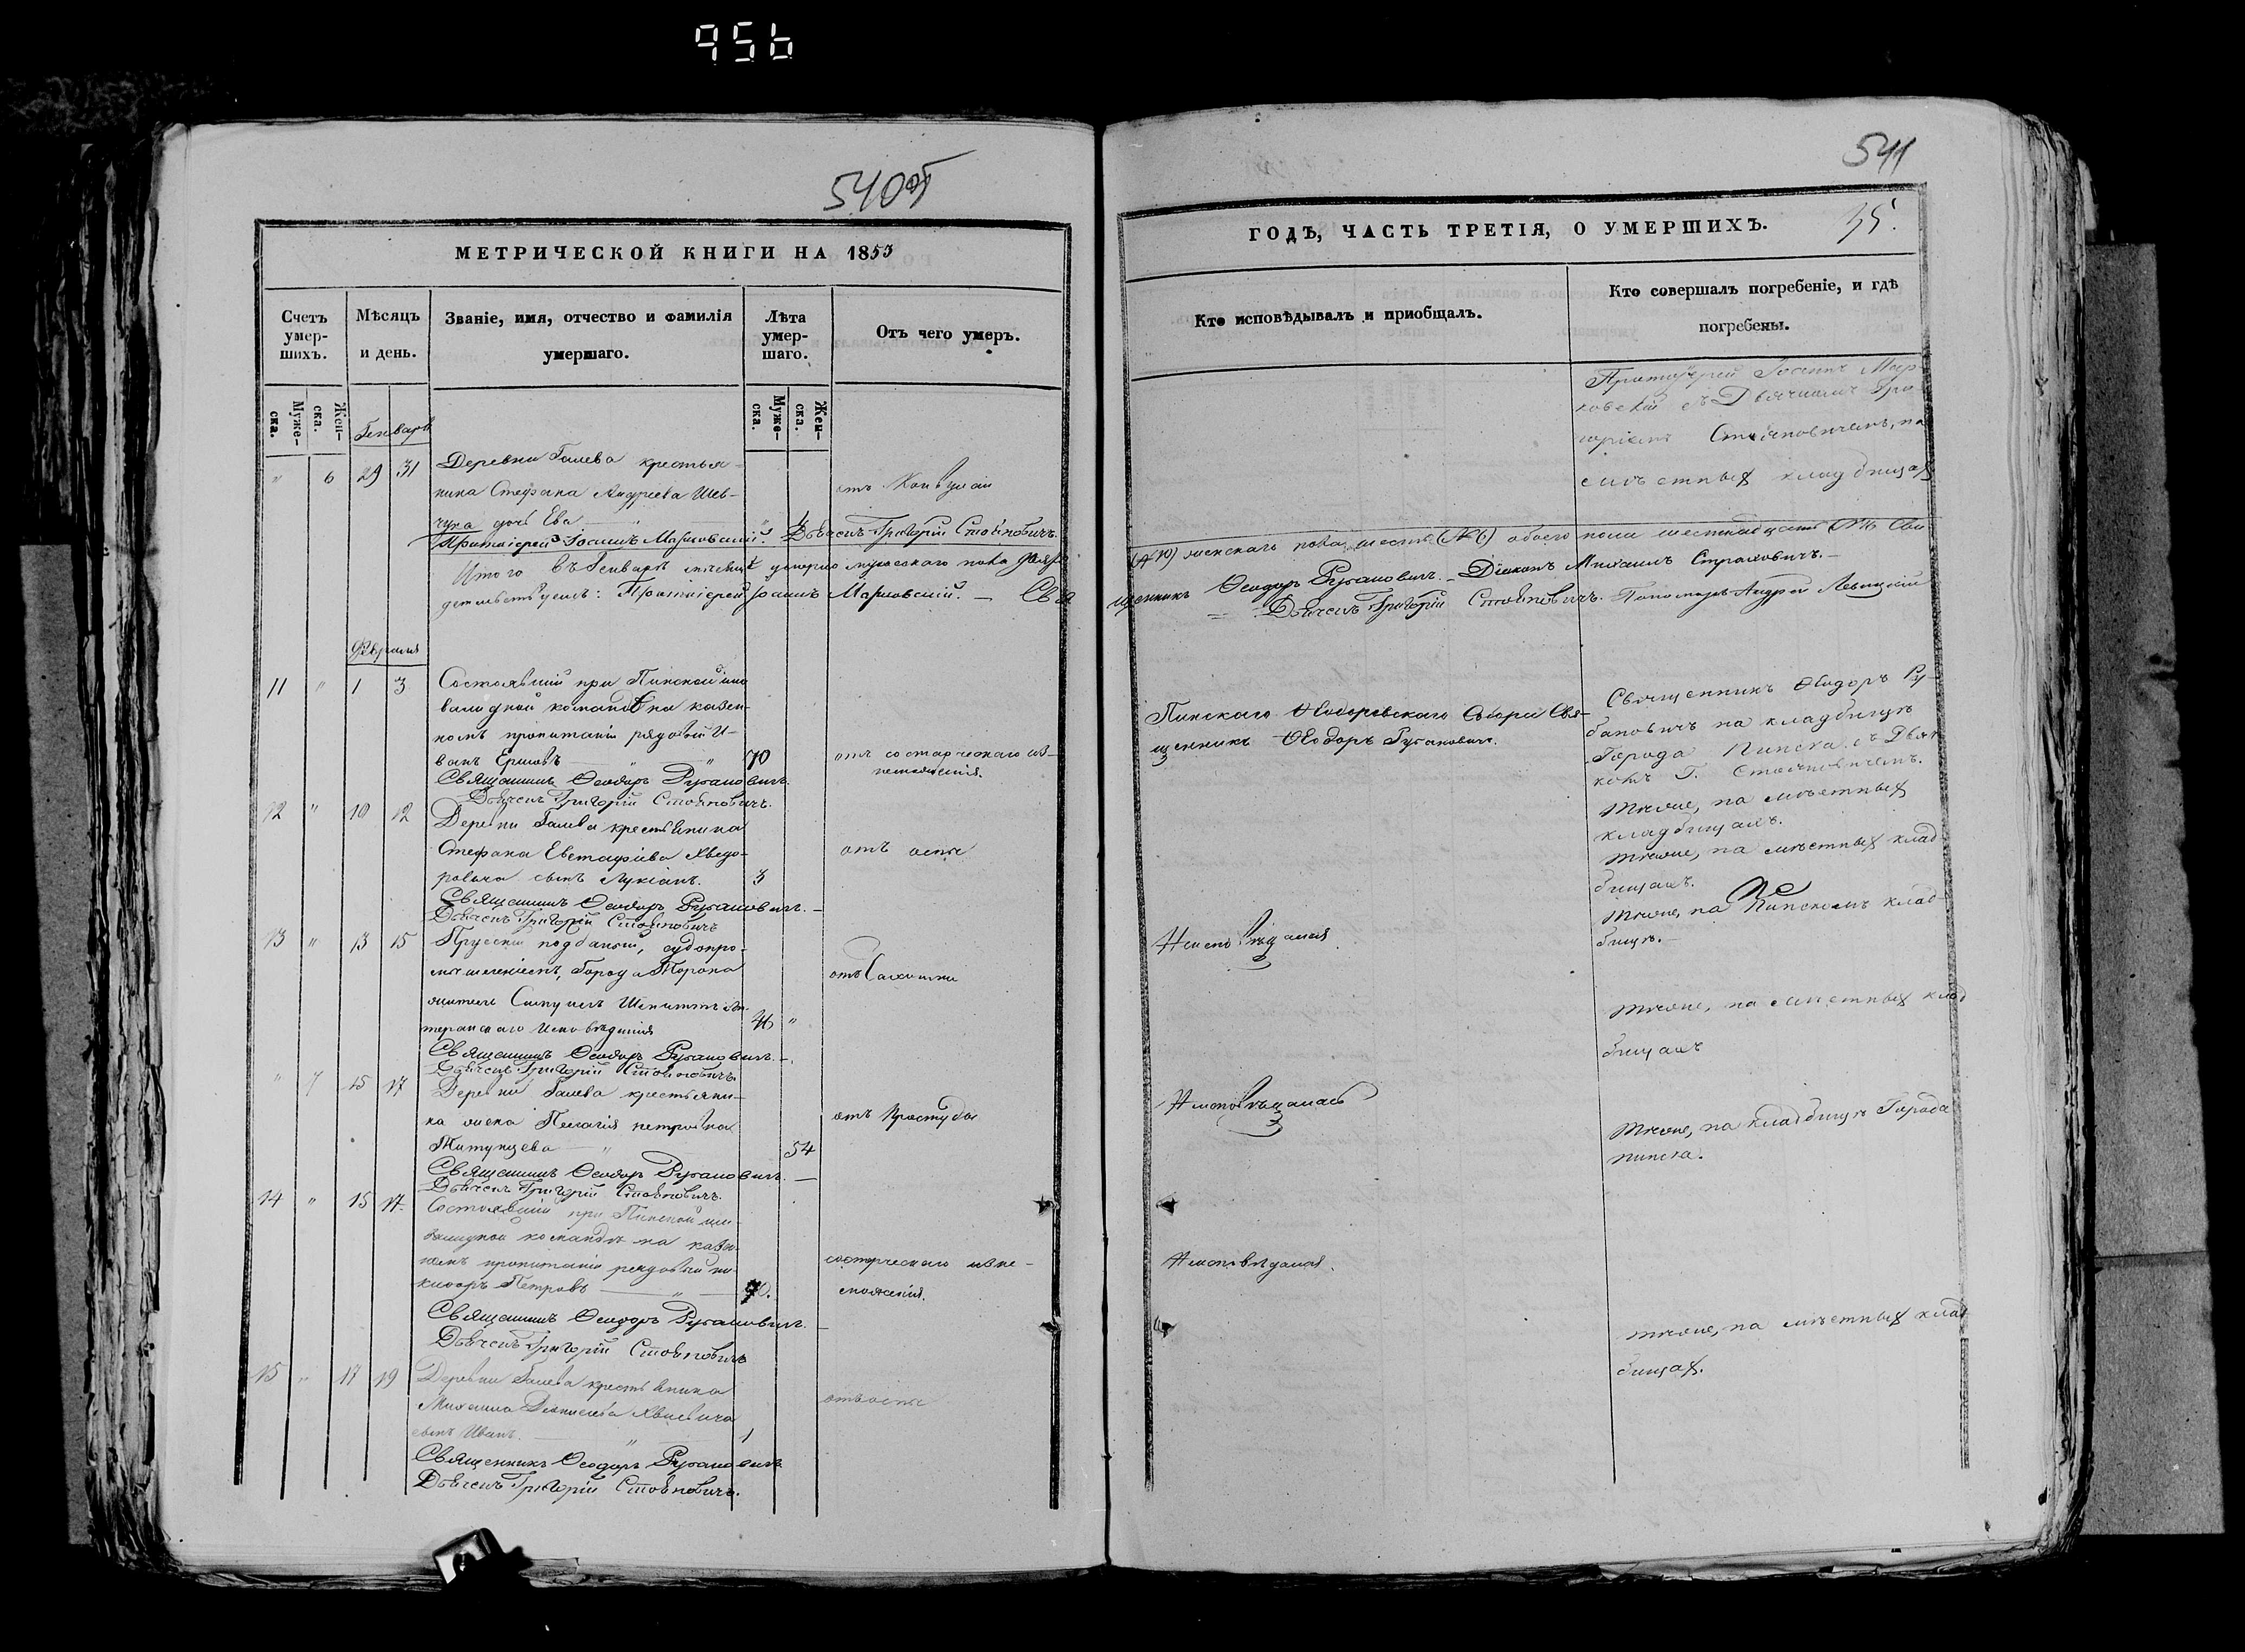 956
540об
МЕТРИЧЕСКОЙ КНИГИ НА 1853
Счетъ умер-шихъ.
Мѣсяцъ и день.
Званіе, имя, отчество и фамилія умершаго.
Лѣта умер-шаго.
Отъ чего умеръ.
Муже-ска.
Жен-ска.
Муже-ска.
Жен-ска.
Генварь
" 6 29 31 Деревни Галева крестья-
нина Стефана Андреева Шев-
отъ Конвулсій
чука дочь Ева
Протоіерей Іоаннъ Маржовскій. Дьячекъ Григорій Стояновичъ.
Итого въ Генварѣ мѣсяцѣ умерло мужескаго пола
детельствуемъ: Протоіерей Іоаннъ Маржовскій. — Свя
Февраля
11 " 1 3 Состоявшій при Пинской ин
валидной командѣ на казен-
номъ пропитаніи рядовый И-
ванъ Ершовъ " 70
отъ старческаго из-
неможенія.
Священникъ Ѳеодоръ Рубановичъ.
Дьячекъ Григорій Стояновичъ.
12 " 10 12 Деревни Галева крестьянина
Стефана Евстафіева Хведо-
отъ оспы
ровича сынъ Лукіанъ. 3
Священникъ Ѳеодоръ Рубановичъ. —
Дьячекъ Григорій Стояновичъ
13 " 13 15 Прусскій подданый, судопро-
мышленикъ, Города Торона
отъ Чахотки
житель Самуилъ
теранскаго Исповѣданія 46 "
Священникъ Ѳеодоръ Рубановичъ. —
Дьячекъ Григорій Стояновичъ.
" 7 15 17 Деревни Галева крестьяни-
на жена Пелагія Петровна
отъ Простуды
Житунцева " 54
Священникъ Ѳеодоръ Рубановичъ. —
Дьячекъ Григорій Стояновичъ.
14 " 15 17 Состоявшій при Пинской ин-
валидной командѣ на казен-
номъ пропитаніи рядовый Ни-
старческаго изне-
киѳоръ Петровъ " 70.
можения.
Священникъ Ѳеодоръ Рубановичъ. —
Дьячекъ Григорій Стояновичъ
15 " 17 19 Деревни Галева крестьянина
Михаила
отъ оспы
сынъ Иванъ. " 1
Священникъ Ѳеодоръ Рубановичъ
Дьячекъ Григорій Стояновичъ.
541
35.
ГОДЪ, ЧАСТЬ ТРЕТІЯ, О УМЕРШИХЪ.
Кто исповѣдывалъ и пріобщалъ.
Кто совершалъ погребеніе, и гдѣ погребены.
Протоіерей Іоаннъ Мар-
жовскій съ Дьячкомъ Гри-
горіемъ Стояновичемъ, на
мѣстныхъ кладбищахъ
(№10) женскаго пола шесть (№6) обоего пола шестнадцать (№16) Сви
щенникъ Ѳеодоръ Рубановичъ. — Діаконъ Михаилъ Страховичъ. —
Дьячекъ Григорій Стояновичъ. Пономарь Андрей Левицкій
Пинскаго Ѳеодоровскаго Собора Свя-
щенникъ Ѳеодоръ Рубановичъ.
Священникъ Ѳеодоръ Ру-
бановичъ на кладбищѣ
Города Пинска съ Дьяч
комъ Г. Стояновичемъ.
тѣже, на мѣстныхъ
кладбищахъ.
тѣже, на мѣстныхъ клад
бищахъ.
тѣже, на Пинскомъ клад-
бищѣ. —
Неисповѣдался
тѣже, на мѣстныхъ клад
бищахъ
Неисповѣдалась
тѣже, на кладбищѣ Города
Пинска.
Неисповѣдался.
тѣже, на мѣстныхъ клад
бищахъ.